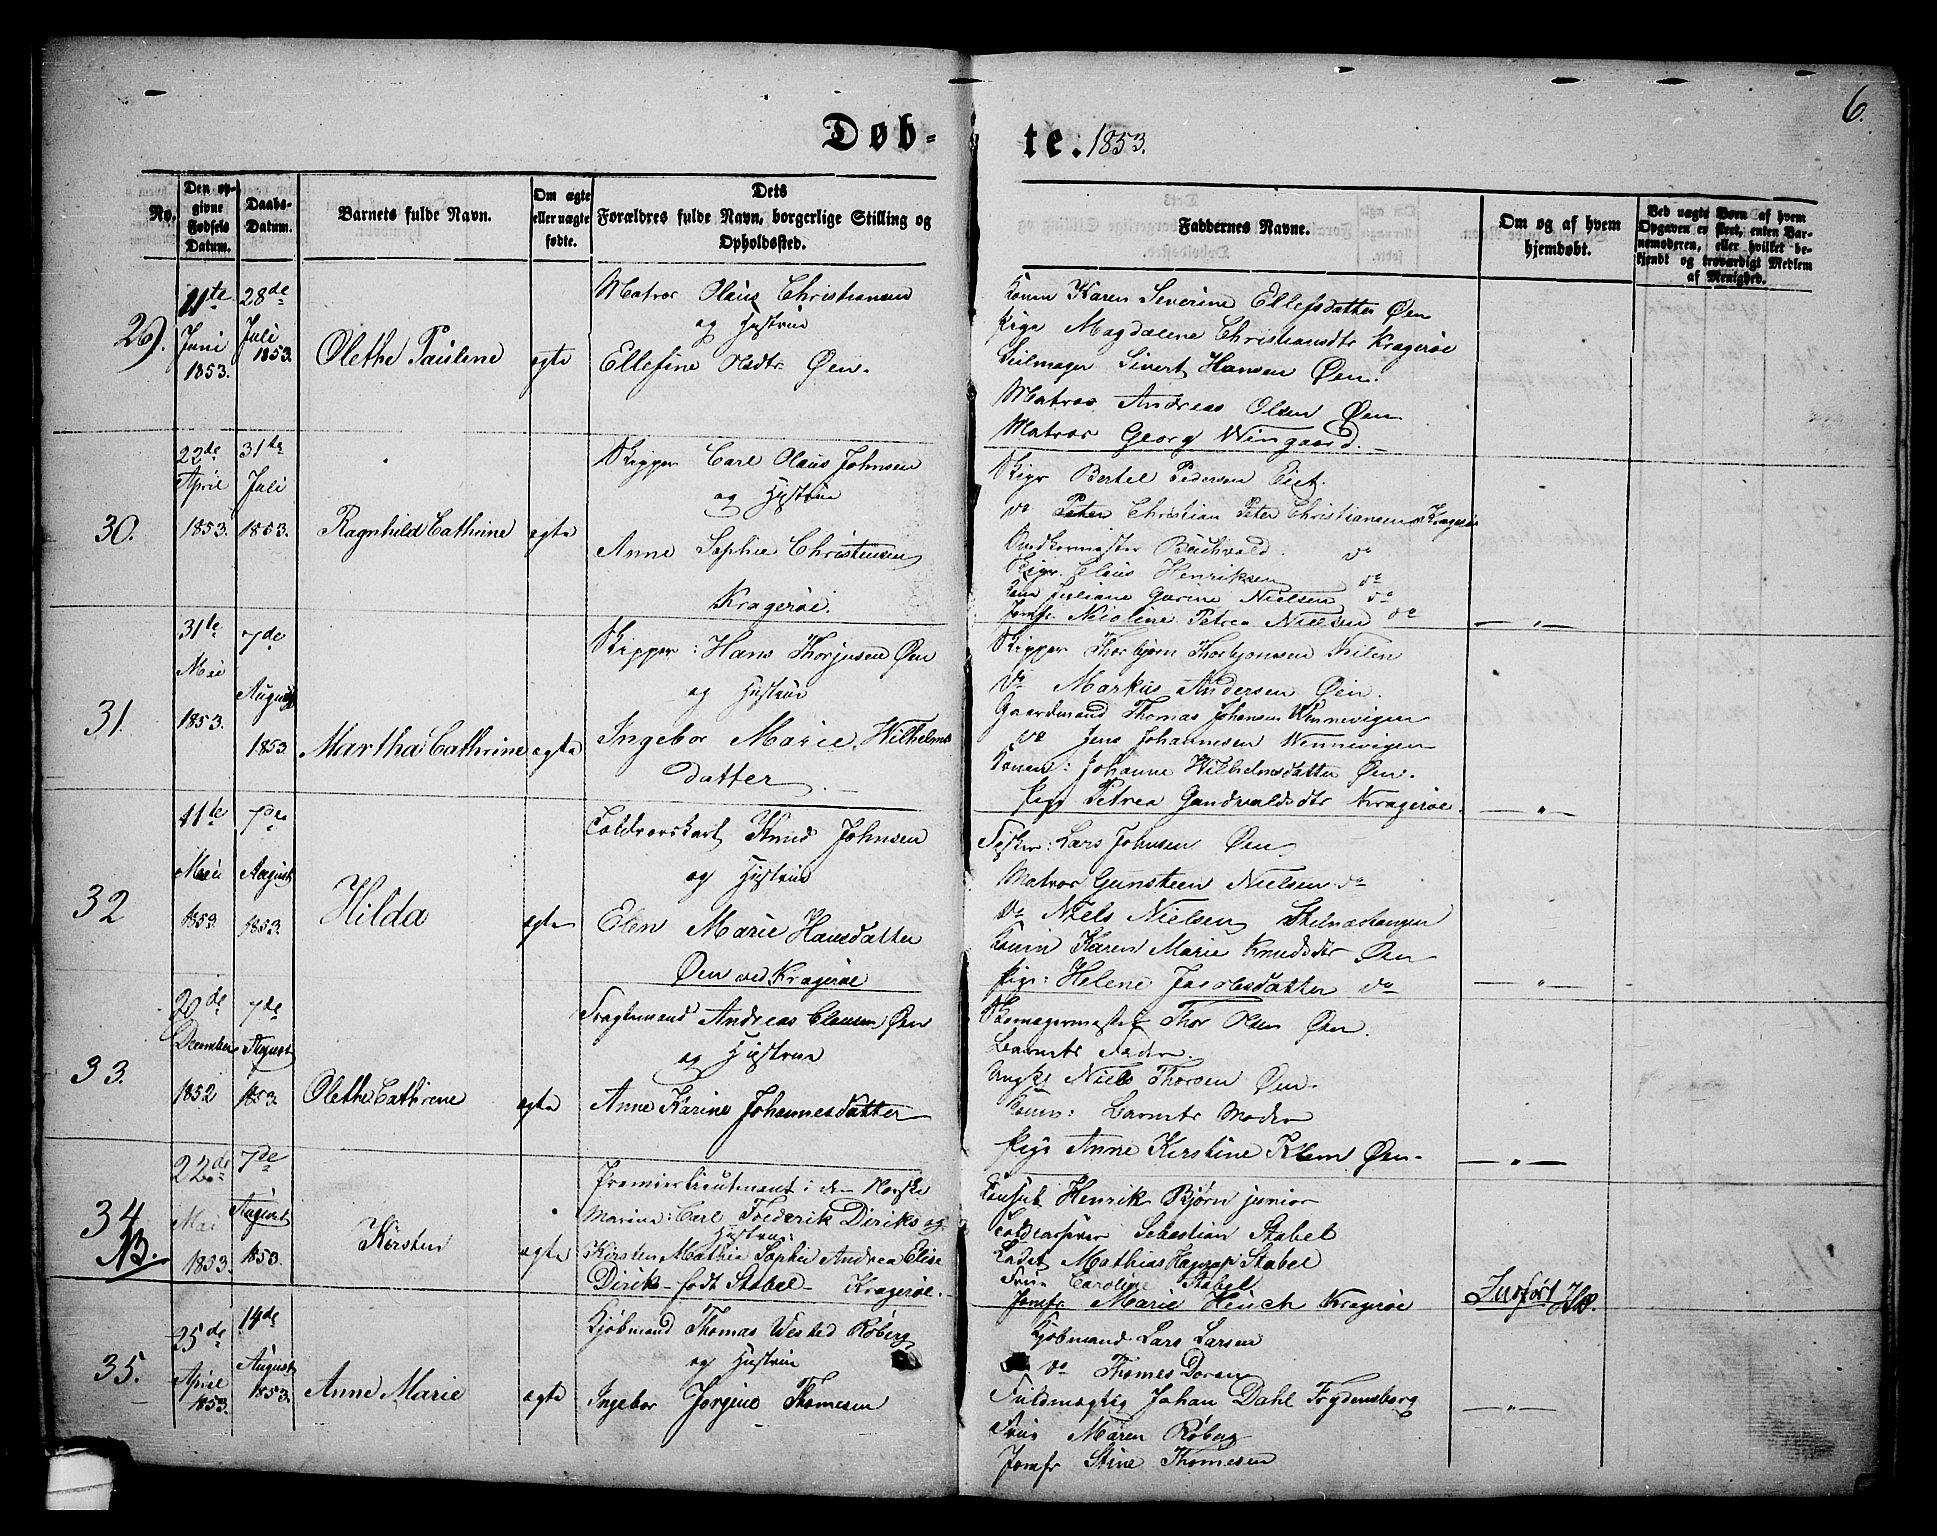 6.
Døb- te. 1853.
No.
Den opgivne Fødsels Datum.
Daabs-Datum.
Barnets fulde Navn.
Om ægte eller uægte fødte.
Dets Forældres fulde Navn, borgerlige Stilling og Opholdssted.
Faddernes Navne.
Om og af hvem hjemdøbt.
Ved uægte Børn af hvem Opgaven er skeet, enten Barnemoderen, eller hvilket bekjendt og troværdigt Medlem af Menighed.
29.
11te Juni 1853.
28de Juli 1853.
Olethe Paulene
egte
Matros Olaus Christiansen
og Hustrue
Ellefine Olsdtr Øen.
Konen Karen Severine Ellefsdatter Øen
Pige Magdalene Christiansdtr Kragerøe
Seilmager Sivert Hansen Øen.
Matros Andreas Olsen Øen
Matros Georg Wingaard.
30.
22de April 1853.
31te Juli 1853.
Ragnhild Cathrine
egte
Skipper Carl Olaus Johnsen
og Hustrue
Anne Sophie Christensen
Kragerøe.
Skipr Bertel Pedersen Eiet.
do Peter Christian Peter Christiansen Kragerøe
Buchvald. do
Skipr. Claus Henriksen do
Juliane Gurine Nielsen do
Jomfr. Nicoline Petrea Nielsen do
— " —
31.
31te Mai 1853.
7de August 1853.
Martha Cathrine
egte
Skipper: Hans Thorjusen Øen
og Hustrue
Ingebor Marie Wilhelms
datter
Skipper Thorbjørn Thorbjønsen Kilen
do Markus Andersen Øen.
Gaardmand Thomas Johansen Wennevigen
do Jens Johannesen Wennevigen
Konen: Johanne Wilhelmsdatter Øen.
Pige Petrea Gundvaldsdtr Kragerøe.
— " —
32
11te Mai 1853.
7de August 1853.
Hilda
egte
Toldroerskarl Knud Johnsen
og Hustrue
Elen Marie Hansdatter
Øen ved Kragerøe
Fisker: Lars Johnsen Øen
Matros Gunsteen Nielsen do
do Niels Nielsen
Konen Karen Marie Knudsdtr Øen
Pige: Helene Jacobsdatter do
— " —
33.
20de December 1852
7de August 1853.
Olethe Cathrine
egte
Andreas Clausen Øen
og Hustrue
Anne Karine Johannesdatter
Skomagermester Thor Olsen Øen.
Barnets Fader.
Ungk. Niels Thorsen Øen.
Konen: Barnets Moder
Pige Anne Kirstine Klem Øen.
— " —
34
NB.
22de Mai 1853.
7de August 1853.
Kirsten
egte
Premierlieutenant i den Norske
Marine: Carl Frederik Diriks og
Hustrue:
Kirsten Mathia Sophie Andrea Elise
Diriks født Stabel Kragerøe.
Consul Henrik Bjørn junior
Toldcasserer Sebastian Stabel
Cadet Mathias Hagerup Stabel
Frue Caroline Stabel
Jomfr Marie Heuch Kragerøe
35.
25de April 1853.
14de August 1853.
Anne Marie
egte
Kjøbmand Thomas Wested Røberg
og Hustrue
Ingebor Jorgine Thomesen
Kjøbmand Lars Larsen
do Thomes Dorsen
Fuldmægtig Johan Dahl Frydensborg
Frue Maren Røberg
Jomfr Stine Thomesen
— " —